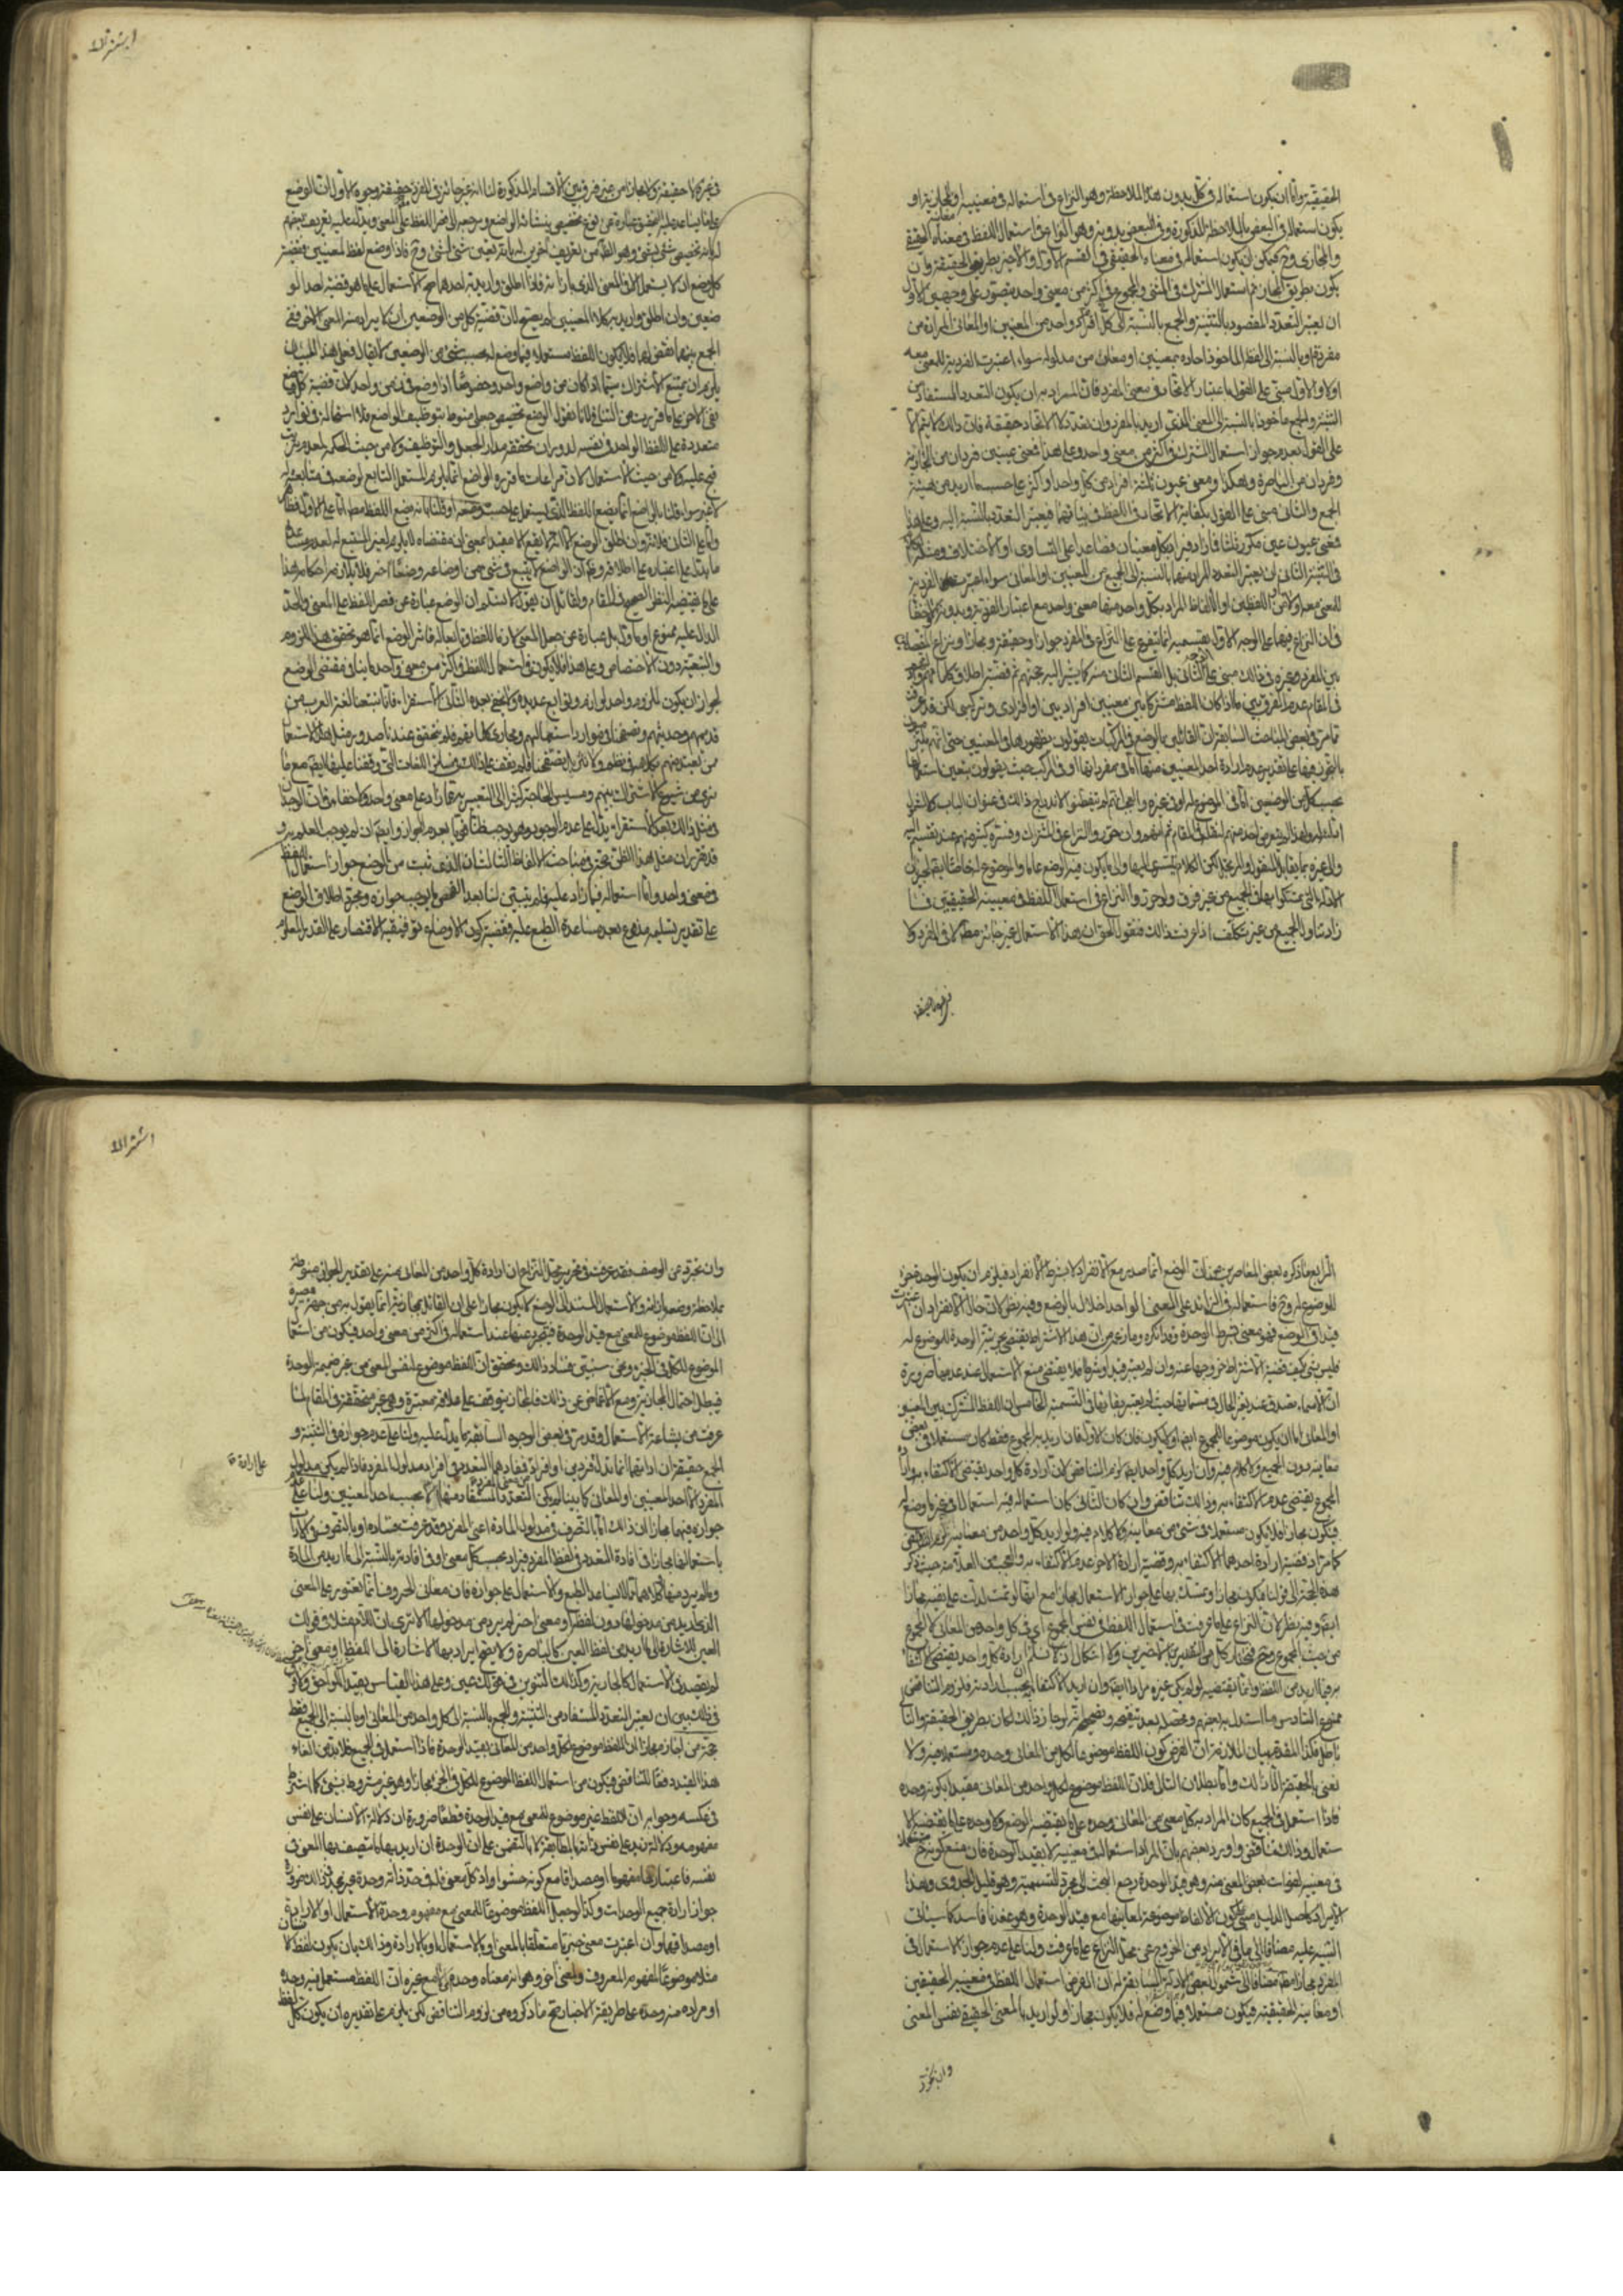 الحقيقية واما ان يكون استعماله في كل بدون هذه الملاحظة وهو النزاع في استعماله في معنييه او المجازية او
يكون استعماله في البعض بالملاحظة المذكورة وفي البعض بدونه وهو النزاع في استعمال اللفظ في معناه الحقيقي
والمجازي وح فيمكن ان يكون استعماله في معناه الحقيقي في القسم الاول والاخير بطريق الحقيقة وان
يكون بطريق المجاز ثم استعمال المشترك في المثنى والمجموع في اكثر من معنى واحد يتصور على وجهين الاول
ان يعتبر التعدد المقصود بالتثنية والجمع بالنسبة الى كل فرد او واحد من المعنيين او المعاني المرادة من
مفرده او بالنسبة الى لفظ الماخوذ احاده بمعنيين او معان من مدلوله سواء اعتبرت الفردية للمعنى معه
اولا والاول مبني على القول باعتبار الاتحاد في معنى المفرد فان المراد به ان يكون التعدد المستفاد من
التثنية والجمع ماخوذا بالنسبة الى المعنى الذي اريد بالمفرد وان تعدد لا الاتحاد حقيقة فان ذلك لا يتم الا
على القول بعدم جواز استعمال المشترك في اكثر من معنى واحد وعلى هذا فمعنى عينين فردان من الجارية
وفردان من الباصرة وهكذا ومعنى عيون ثلثة افراد من كل واحد او اكثر على حسب ما اريد من هيئة
الجمع والثاني مبني على القول بكفاية الاتحاد في اللفظ في بنائهما فيعتبر التعدد بالنسبة اليه وعلى هذا
فمعنى عيون عين مكرر ثلثا فازاد فيراد بكل معنيان فصاعدا على التساوي او الاختلاف ومنه
في التثنية الثاني ان يعتبر التعدد المراد منهما بالنسبة الى الجميع من المعنيين او المعاني سواء اعتبر الفردية
للمعنى معه اولا من اللفظين او الالفاظ المراد بكل واحد منها معنى واحد مع اعتبار الفردية وبدونه
فان النزاع فيهما على الوجه الاول بقسميه انما يتفرع على النزاع في المفرد جوازا وحقيقة ومجازا ونزاع المفصلة
بين المفرد وغيره في ذلك مبني على الثاني بل القسم الثاني منه كما يشير اليه حجتهم ثم قضية اطلاق كلماتهم
في المقام عدم الفرق بين ما اذا كان اللفظ مشتركا بين معنيين افراديين او افرادي وتركيبي لكن قد عرفت
مما مر في بعض المباحث السابقة ان القائلين بالوضع في المركبات يقولون بظهورها في المعنيين حتى انهم
بالتجوز فيها على تقدير عدم ارادة احد المعنيين منها اما في مفرداتها او في المركب حيث يقولون بتعين استعمالها
بحسب كل من الوضعين اما في الموضوع له او في غيره والعجب انهم لم يتفطنوا الاندراج ذلك في عنوان الباب كما
اشكالهم ولهذا لم يتعرض احد منهم لنقل في المقام ثم انهم وان حرروا النزاع في المشترك وفسره كثير منهم عند تقسيم
والى غيره بما يقابل المنقول والمرتجل لكن الكلام يتسرى اليهما والى ما يكون فيه الوضع عاما والموضوع له خاصا ايضا لجريان
الادلة التي تمسكوا بها في الجميع من غير فرق ولو حرروا النزاع في استعمال اللفظ في معنييه الحقيقيين فما
زاد تناول الجميع من غير تكلف اذا عرفت ذلك فنقول الحق ان هذا الاستعمال غير جائز مطلقا لا في المفرد ولا
في غيره لا حقيقة
اشتراك
في غيره لا حقيقة ولا مجازا من غير فرق بين الاقسام المذكورة لنا انه غير جائز في المفرد حقيقة وجوه الاول ان الوضع
على ما يساعد عليه التحقيق عبارة عن نوع تخصيص ينشائه الواضع ومرجعه الى قصر اللفظ على المعنى ويدل عليه تعريف بعضهم
له بانه تخصيص شئ بشئ وهو الظاهر من تعريف اخرين له بانه تعيين شئ لشئ وح فاذا وضع لفظ لمعنيين فقضية
كل وضع ان لا يستعمل الا في المعنى الذي بازائه فاذا اطلق واريد به احدهما صح الاستعمال على ما هو قضية احد الو
ضعين وان اطلق واريد به كلا المعنيين لم يصح لان قضية كل من الوضعين ان لا يراد منه المعنى الاخر ففي
الجمع بينهما نقض لهما فلا يكون اللفظ مستعملا فيما وضع له بحسب شئ من الوضعين لا يقال فعلى هذا البيان
يلزم ان يمتنع الاشتراك سيما اذا كان من واضع واحد وخصوصا اذا وضع في زمن واحد لان قضية كل وضع
نفي الاخر على ما قررت من التنافي لانا نقول الوضع تخصيص جعلي منوط بتوظيف الواضع فلا استحالة في توارد
متعددة على اللفظ الواحد في نفسه لدوران تحققه مدار الجعل والتوظيف ولا من حيث الحكمة لعدم ترتب
قبح عليه ولا من حيث الاستعمال لان مراعات ما قرره الواضع انما يلزم المستعمل التابع لوضعه في متابعته له
لا غير سواء قلنا بان الواضع انما يضع اللفظ الذي يستعمل على حسب وضعه او قلنا بانه يضع اللفظ مطلقا اما على الاول فظاهر
واما على الثاني فلانه وان اطلق الوضع الا ان اثره لا يقع الا مقيدا بمعنى ان مقتضاه لا يلزم لغير المتبع له لعدم مساعدة
ما يدل على اعتباره على اطلاقه وظاهر ان الواضع لا يتبع في شئ من اوضاعه وضعا اخر فلا يلازمه احكامه هذا
على ما يقتضيه النظر الصحيح في المقام ولقائل ان يقول لا نسلم ان الوضع عبارة عن قصر اللفظ على المعنى والحد
الدال عليه ممنوع او ماول بل عبارة عن جعل المعنى لازما للفظ وتابعا له فاثر الوضع انما هو تحقق هذا اللزوم
والتبعية دون الاختصاص وعلى هذا فلا يكون في استعمال اللفظ في اكثر من معنى واحد ما ينافي مقتضى الوضع
لجواز ان يكون لملزوم واحد لوازم وتوابع عديدة ولا يخفى بعده الثاني الاستقراء فانا تتبعنا لغة العرب من
قديمهم وحديثهم وتصفحنا في موارد استعمالهم ومجاري كلماتهم فلم نتحقق عندنا صدور مثل هذا الاستعمال
ممن يعتد منهم بكلامه في نظم ولا نثر بل تصفحنا فلم نقف على ذلك في سائر اللغات التي وقفنا عليها ايضا مع ما
نرى من شيوع الاشتراك بينهم ومسيس الحاجة كثيرا الى التعبير به عما زاد على معنى واحد ولا خفاء في ان الوجدان
في مثل ذلك بعد الاستقراء يدل على عدم الوجود وهو يوجب ظنا قويا بعدم الجواز وايضا ان لم يوجب العلم به و
قد قررنا ان مثل هذا الظن حجة في مباحث الالفاظ الثالث ان الذي ثبت من الوضع جواز استعمال اللفظ
في معنى واحد واما استعماله فيما زاد عليه فلم يتبين لنا بعد الفحص ما يوجب جوازه ومجرد اطلاق الوضع
على تقدير تسليمه مدفوع بعدم مساعدة الطبع عليه وقضية كون الاوضاع توقيفية الاقتصار على القدر المعلوم
الرابع ما ذكره بعض المعاصرين من ان الوضع انما صدر مع الانفراد لا بشرط الانفراد فيلزم ان يكون الوحدة جزء
للموضوع له وح فاستعماله في الزائد على المعنى الواحد اخلال بالوضع وفيه نظر لان حال الانفراد ان اعتبرت
قيدا في الوضع فهو معنى شرط الوحدة وقد انكره وما زعمه من ان هذا الاشتراط يقتضي جزئية الوحدة للموضوع له
فليس بشئ كيف قضية الاشتراط خروجها عنه وان لم يعتبر قيدا وشرطا فلا يقتضي منع الاستعمال عند عدمها ضرورة
ان الاسماء تصدق عند تغير الحال في مسمياتها حيث لم يعتبر بقائها في التسمية الخامس ان اللفظ المشترك بين المعنيين
او المعاني اما ان يكون موضوعا للمجموع ايضا او لا يكون فان كان الاول فان اريد به المجموع فقط كان مستعملا في بعض
معانيه دون الجميع ولا كلام فيه وان اريد كل واحد ايضا لزم التناقض لان ارادة كل واحد يقتضي الاكتفاء به وارادة
المجموع يقتضي عدم الاكتفاء به وذلك تناقض وان كان الثاني كان استعماله فيه استعمالا في غير ما وضع له
فيكون مجازا فلا يكون مستعملا في شئ من معانيه ولا كلام فيه ولو اريد بكل واحد من معانيه لزم التناقض
كما مر اذ قضية ارادة احدهما الاكتفاء به وقضية ارادة الاخر عدم الاكتفاء به والعجب من العلامة حيث ذكر
هذه الحجة الى قولنا فيكون مجازا وتمسك بها على جواز الاستعمال مجازا مع انها لو تمت لدلت على نفيه مجازا
ايضا وفيه نظر لان النزاع على ما عرفت في استعمال اللفظ في نفس المجموع اي في كل واحد من المعاني لا المجموع
من حيث المجموع وح فنختار كل من التقديرين الاخيرين ولا اشكال اذ لا نسلم ان ارادة كل واحد يقتضي الاكتفاء
به فيما اريد من اللفظ وانما يقتضيه لو لم يكن غيره مرادا ايضا وان اريد الاكتفاء به بحسب ارادته فلزوم التناقض
ممنوع السادس ما استدل به بعضهم ومحصله بعد تنقيحه وتصحيحه انه لو جاز ذلك لكان بطريق الحقيقة والتالي
باطل فكذا المقدم بيان الملازمة ان الفرض كون اللفظ موضوعا لكل من المعاني وحده ويستعمل فيه ولا
نعني بالحقيقة الا ذلك واما بطلان التالي فلان اللفظ موضوع لكل واحد من المعاني مقيدا بكونه وحده
فاذا استعمل في الجميع كان المراد به كل معنى من المعاني وحده على ما يقتضيه الوضع ولا وحده على ما يقتضيه الا
ستعمال وذلك تناقض واورد بعضهم بان المراد استعماله في معنييه لا بقيد الوحدة فان منع كونه ح مستعملا
في معنييه لفوات بعض المعنى منه وهو قيد الوحدة رجع البحث الى مجرد التسمية وهو قليل الجدوى وهذا
الايراد كاصل الدليل مبني على كون الالفاظ موضوعة لمعانيها مع قيد الوحدة وهو عندنا فاسد كما سياتي
التنبيه عليه مضافا الى ما في الايراد من الخروج عن محل النزاع على ما عرفت ولنا على عدم جواز الاستعمال في
المفرد مجازا مطلقا مضافا الى شمول بعض الادلة السابقة له ان الغرض استعمال اللفظ في معنييه الحقيقيين
او معانيه الحقيقية فيكون مستعملا فيما وضع له فلا يكون مجازا ولو اريد بالمعنى الحقيقي نفس المعنى
وان تجرد
اشتراك
وان تجرد عن الوصف فقد عرفت في تحرير محل النزاع ان ارادة كل واحد من المعاني منه على تقدير الجواز منوطة
بملاحظة وضعه بازائه والاستعمال المستند الى الوضع لا يكون مجازا على ان القائل بمجازيته انما يقول به من جهة مصيره
الى ان اللفظ موضوع للمعنى مع قيد الوحدة فيتجرد عنها عند استعماله في اكثر من معنى واحد فيكون من استعمال
الموضوع للكل في الجزء ونحن سنبين فساد ذلك ونحقق ان اللفظ موضوع لنفس المعنى من غير ضميمة الوحدة
فيبطل احتمال المجازية ومع الاغماض عن ذلك فالمجاز يتوقف على علاقة معتبرة وهي غير متحققة في المقام لما
عرفت من بشاعة الاستعمال وقد مر في بعض الوجوه السابقة ما يدل عليه ولنا على عدم جوازه في التثنية و
الجمع حقيقة ان اداتهما انما تدل لفردين او افراد فمفادهما التعدد في افراد مدلول المفرد فاذا لم يكن مدلول
المفرد الا احد المعنيين او المعاني كما بينا لم يكن التعدد المستفاد منهما الا بحسب احد المعنيين ولنا على
جوازه فيهما مجازا ان ذلك اما بالتصرف في مدلول المادة اعني المفرد وقد عرفت فساده او بالتصرف في الاداة
باستعمالها مجازا في افادة التعدد في لفظ المفرد فيراد بحسب كل معنى او في افادته بالنسبة الى ما اريد من المادة
وما لم يرد منها وكلاهما مما لا يساعد الطبع والاستعمال على جوازه فان معاني الحروف انما تعتور على المعنى
الذي اريد من مدخولها دون لفظه او معنى اخر لم يرد من مدخولها الا ترى ان اللام مثلا في قولك
العين للاشارة الى ما اريد من لفظ العين كالباصرة ولا يصح ان يراد بها الاشارة الى اللفظ او معنى اخر
لم يقصد في الاستعمال كالجارية وكذلك التنوين في قولك عين وعلى هذا القياس بقية اللواحق ولا فرق
في ذلك بين ان يعتبر التعدد المستفاد من التثنية والجمع بالنسبة الى كل واحد من المعاني او بالنسبة الى الجميع فقط
حجة من اجازه مجازا ان اللفظ موضوع لكل واحد من المعاني بقيد الوحدة فاذا استعمل في الجميع فلا بد من الغاء
هذا القيد دفعا للتناقض فيكون من استعمال اللفظ الموضوع للكل في الجزء مجازا وهو غير مشروط بشئ كما اشترط
في عكسه وجوابه ان اللفظ غير موضوع للمعنى مع قيد الوحدة قطعا ضرورة ان دلالة الانسان على نفس
مفهومه ودلالة زيد على نفس ذاته بالمطابقة لا بالتضمن على ان الوحدة ان اريد بها ما يتصف بها المعنى في
نفسه فاعتبارها مفهوما او مصداقا مع كونه حشوا واذ كل معنى فله في حد ذاته وحدة غير مجد في ذلك ضرورة
جواز ارادة جميع الوحدات وكذا لو جعل اللفظ موضوعا للمعنى مع مفهوم وحدة الاستعمال او الارادة
او مصداقهما وان اعتبرت معنى حرفيا متعلقا بالمعنى او بالاستعمال او بالارادة وذلك بان يكون لفظ
مثلا موضوعا للمفهوم المعروف ولمعنى اخر وهو انه معناه وحده اي لا مع غيره او ان اللفظ مستعمل فيه وحده
او مراده منه وحده على طريقة الاخبار صح ما ذكروه من لزوم التناقض لكن يلزم على تقديره ان يكون كل لفظ
على ارادة